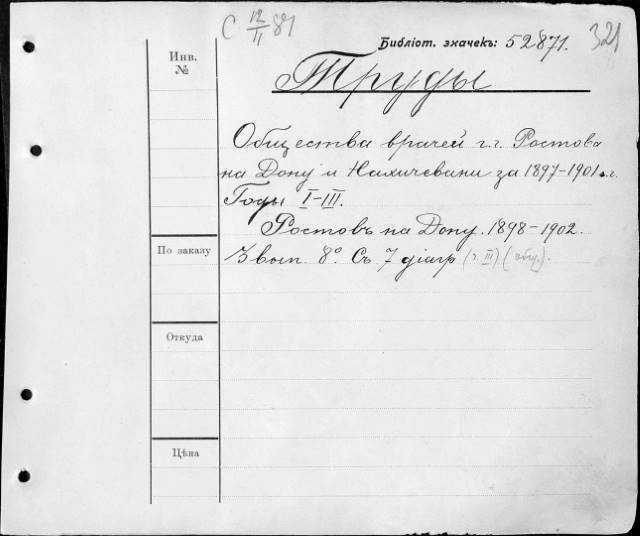 С 12/11 87
Библіот. значекъ: 52871.
321
Инв.
№
Труды
Общества врачей г.г. Ростова
на Дону и Нахичевани за 1897-1901 г.г.
Годы I-III.
Ростовъ на Дону. 1898-1902.
3 вып. 8°. Съ 7 діагр (т. III)
По заказу
Откуда
Цѣна